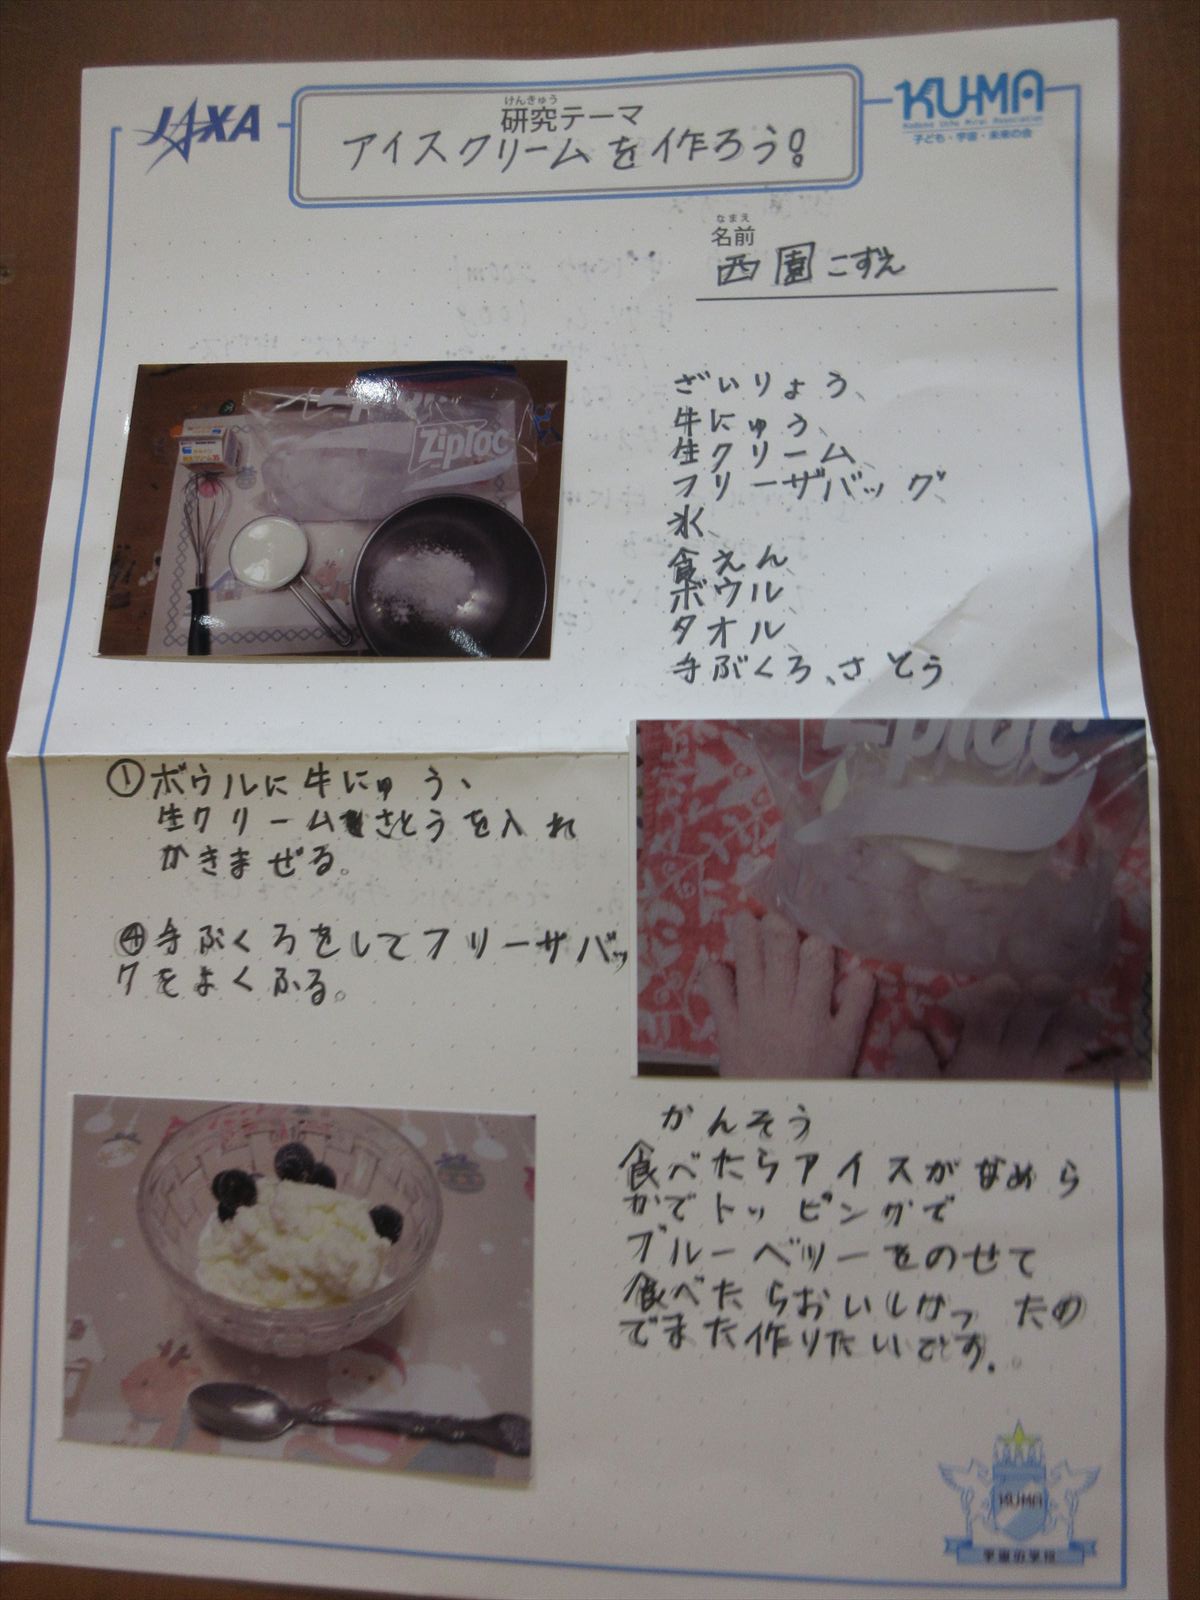 JAXA
けんきゅう
研究テーマ
アイスクリームを作ろう!
KU-MA
子ども・宇宙・未来の会
なまえ
名前
西園こずえ
Ziploc
ざいりょう、
牛にゅう、
生クリーム、
フリーザバッグ、
氷、
食えん
ボウル、
タオル、
手ぶくろ、さとう
①ボウルに牛にゅう、
生クリーム、さとうを入れ
かきまぜる。
④手ぶくろをしてフリーザバッ
グをよくふる。
Ziploc
かんそう
食べたらアイスがなめら
かでトッピングで
ブルーベリーをのせて
食べたらおいしかったの
でまた作りたいです。
KU-MA
宇宙の学校